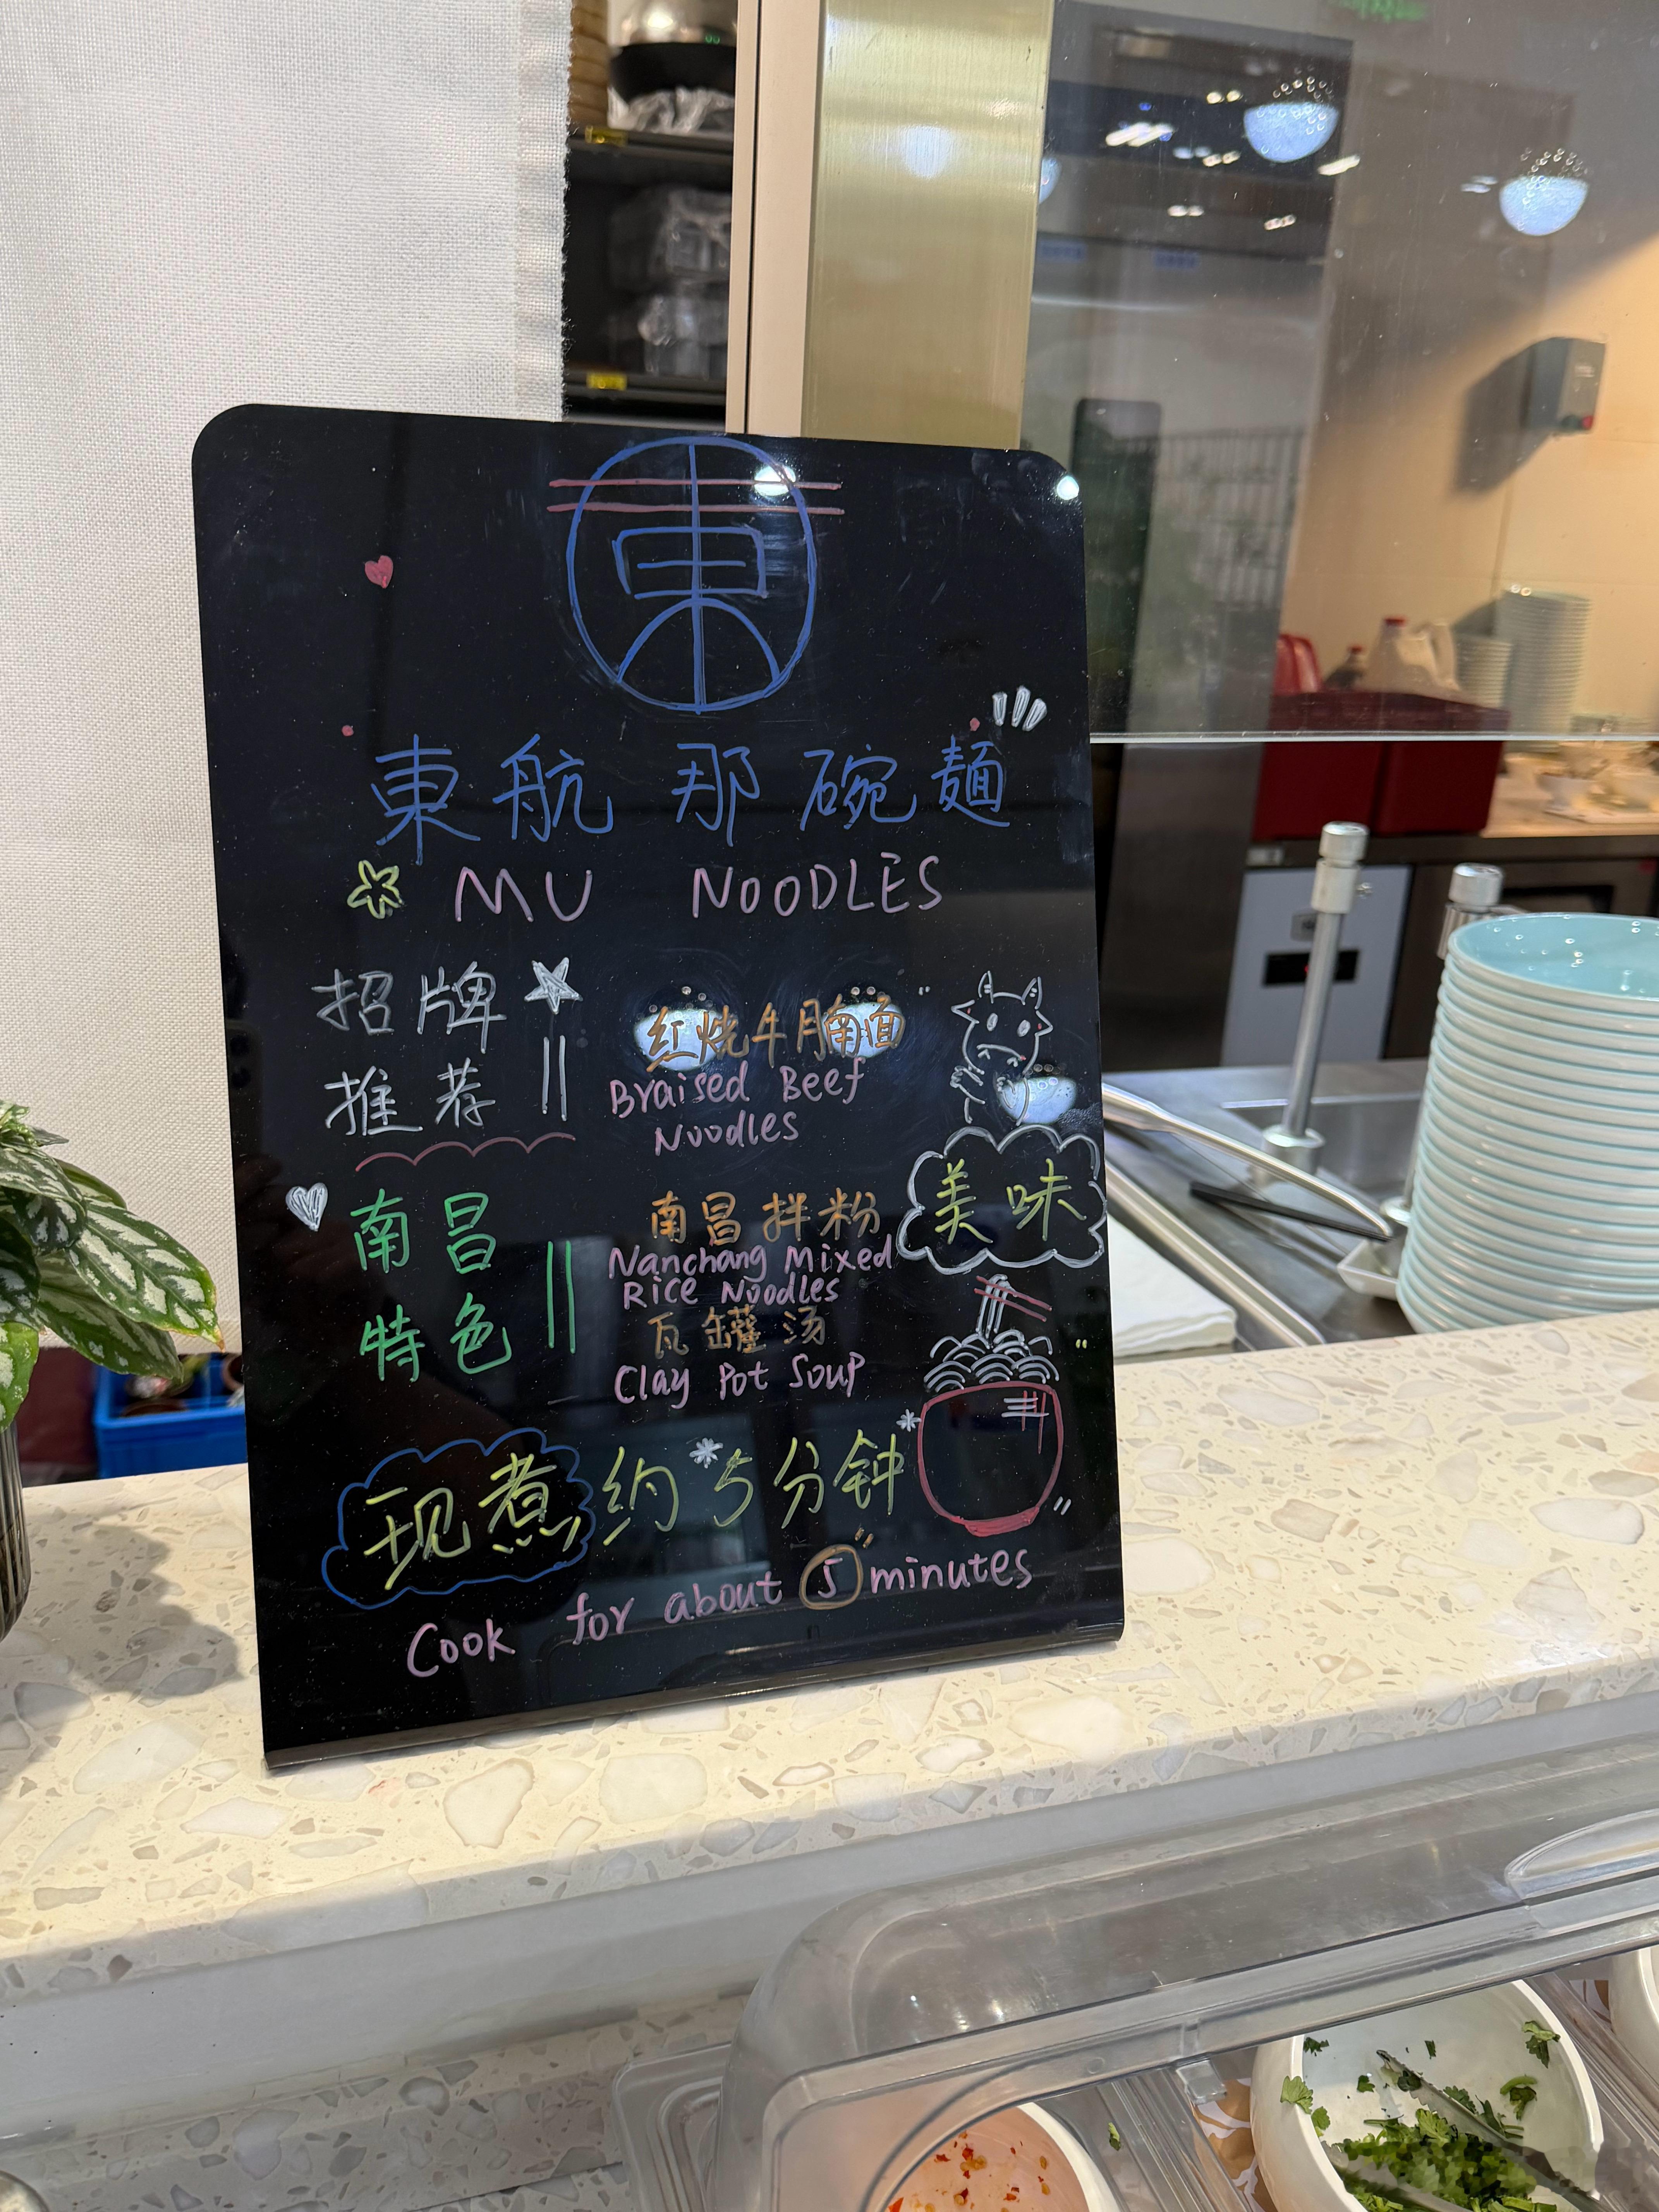 東
東航那碗麵
MU NOODLES
招牌
推荐
红烧牛腩面
Braised Beef
Noodles
南昌
特色
南昌拌粉
Nanchang Mixed
Rice Noodles
瓦罐汤
Clay Pot Soup
美味
现煮约5分钟
Cook for about 5 minutes